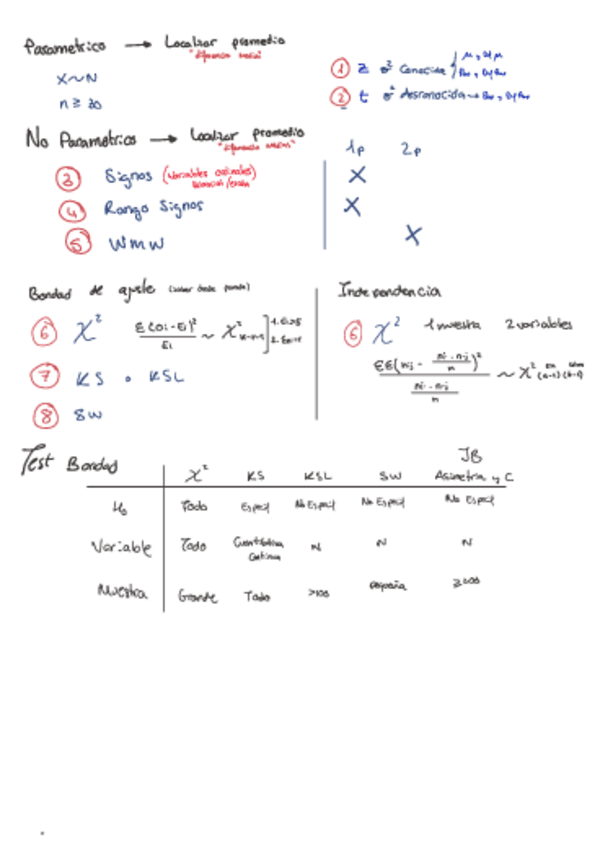 Parametrico → Localizar promedio
"diferencia medias"
X~N
n ≥ 30
① Z σ² Conocida
② t σ² desconocida →
No Parametrico → Localizar Promedio
"diferencia medias"
1p 2p
③ Signos (variables ordinales) X
④ Rango Signos X
⑤ WMW X
Bondad de ajuste
⑥ χ² Σ(Oi-Ei)²/Ei ~ χ²
⑦ KS o KSL
⑧ SW
Independencia
⑥ χ² 1 muestra 2 variables
ΣΣ(nij - ni.n.j/n)² / (ni.n.j/n) ~ χ²
Test Bondad
χ² KS KSL SW JB Asimetria y C
H₀ Todo Especif No Especif No Especif No Especif
Variable Todo Cuantitativa Continua N N N
Muestra Grande Todo >100 pequeña